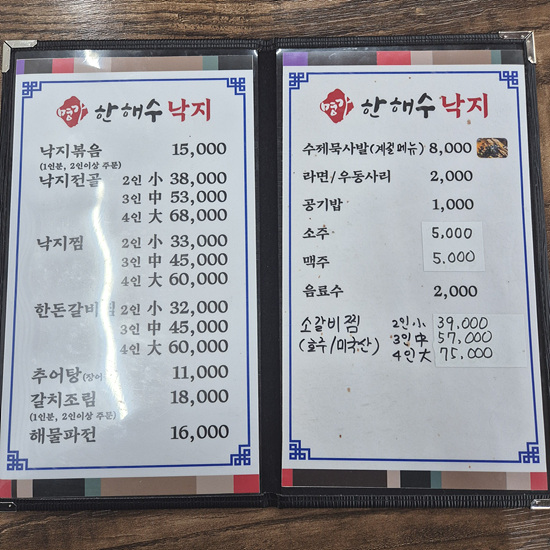 명가 한해수 낙지
낙지볶음 15,000
(1인분, 2인이상 주문)
낙지전골 2인 小 38,000
3인 中 53,000
4인 大 68,000
낙지찜 2인 小 33,000
3인 中 45,000
4인 大 60,000
한돈갈비찜 2인 小 32,000
3인 中 45,000
4인 大 60,000
추어탕 11,000
갈치조림 18,000
(1인분, 2인이상 주문)
해물파전 16,000
명가 한해수 낙지
수제묵사발(계절메뉴) 8,000
라면/우동사리 2,000
공기밥 1,000
소주 5,000
맥주 5.000
음료수 2,000
소갈비찜 2인 小 39,000
(호주/미국산) 3인 中 57,000
4인 大 75,000